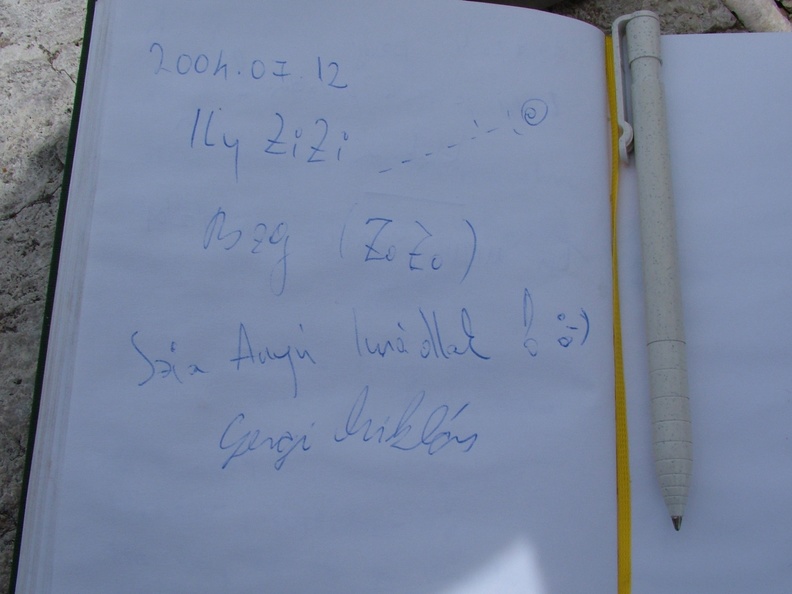 2004.07.12
Ily ZiZi
Bzg (ZoZo)
Szia Anyu Imádlak ! :-)
Gergi Miklós